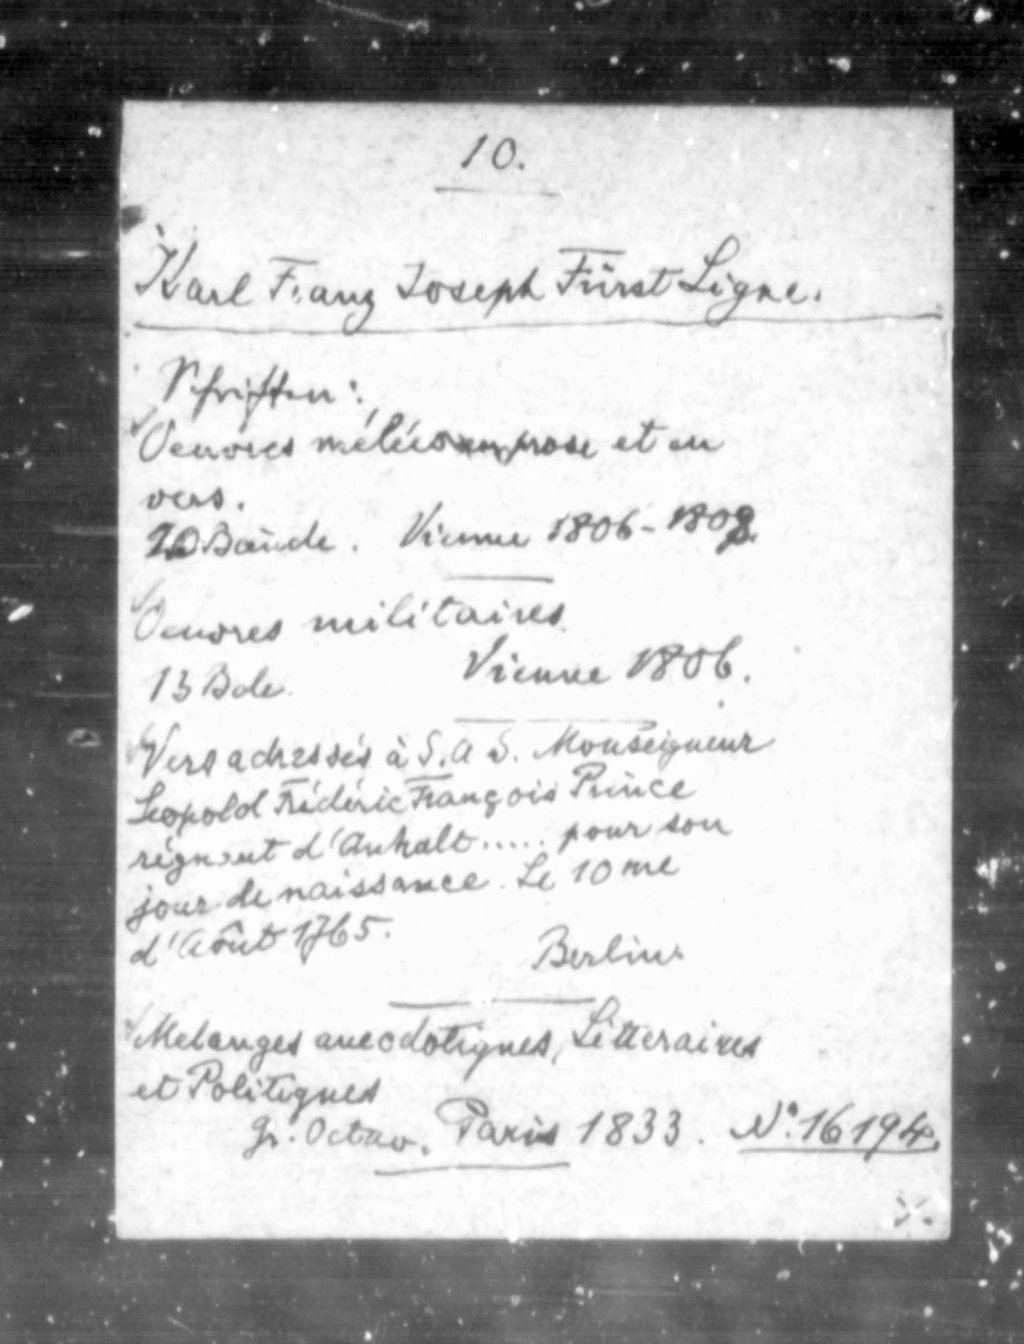 10.
Karl Franz Joseph Fürst Ligne.
Schriften:
Oeuvres mélées en prose et en
vers.
20 Baende. Vienne 1806-1808.
Oeuvres militaires
13 Bde. Vienne 1806.
Vers adressés à S. A S. Monseigneur
Leopold Frédéric François Prince
régnent d'Anhalt..... pour son
jour de naissance. Le 10 me
d'Août 1765.
Berlin.
Melanges anecdotiques, Litteraires
et Politiques
Gr. Octav. Paris 1833. No. 16194.